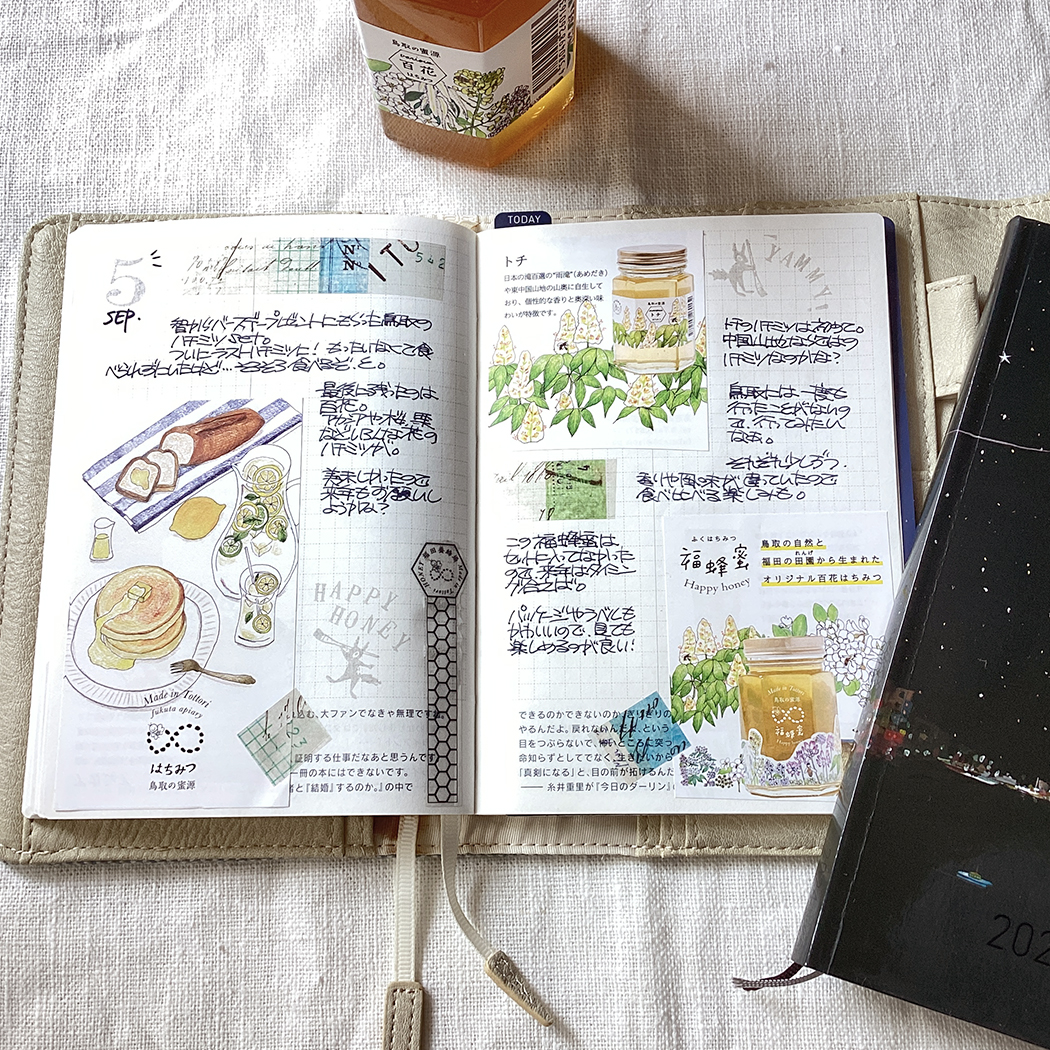 鳥取の蜜源
百花
はちみつ
TODAY
5
SEP.
542
ハチミツSET。
ついにラストハチミツに! もったいなくて食
べられずにいたけど…そろそろ食べるぞ、と。
最後に残ったのは
百花。
アカシアや桜、栗
などいろんな花の
ハチミツか。
美味しかったので
来年もお願いし
ようかな?
HAPPY
HONEY
福田養蜂場
Made in Tottori
fukuta apiary
はちみつ
鳥取の蜜源
込む、大ファンでなきゃ無理です
証明する仕事だなあと思うんです
一冊の本にはできないです。
『結婚』するのか。の中で
トチ
日本の滝百選の"雨滝"(あめだき)
や東中国山地の山奥に自生して
おり、個性的な香りと奥深い味
わいが特徴です。
鳥取の蜜源
トチ
YAMMY!
トチのハチミツははじめて。
ハチミツなのかな?
鳥取には一度も
行ったことがないの
で、行ってみたい
なぁ。
それぞれ少しずつ、
香りや風味が違っていたので
食べ比べる楽しみも。
この福蜂蜜は
セットに入ってなかった
ので、来年はタイミン
グ合えば。
パッケージやラベルも
かわいいので、見ても
楽しめるのが良い!
ふくはちみつ
福蜂蜜
Happy honey
鳥取の自然と
れんげ
福田の田園から生まれた
オリジナル百花はちみつ
Made in Tottori
鳥取の蜜源
福蜂蜜
できるのかできないのかぎりぎりの
やるんだよ。戻れないんだよ、という
目をつぶらないで、怖いところに突っ
命知らずとしてでなく、生きたいから
「真剣になる」と、目の前が拓けるんだ
—— 糸井重里が『今日のダーリン』
202